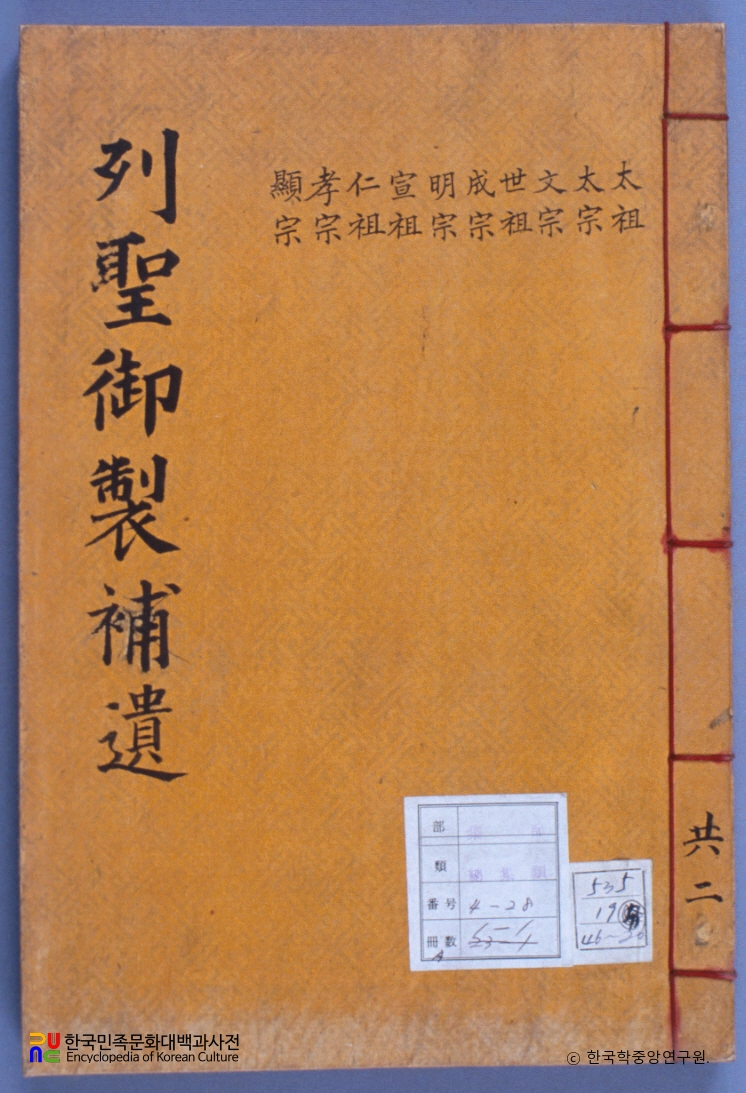 太祖
太宗
文宗
世祖
成宗
明宗
宣祖
仁祖
孝宗
顯宗
列聖御製補遺
共二
部
類
番号 4-28
冊数
535
19
46-
한국민족문화대백과사전
Encyclopedia of Korean Culture
© 한국학중앙연구원.